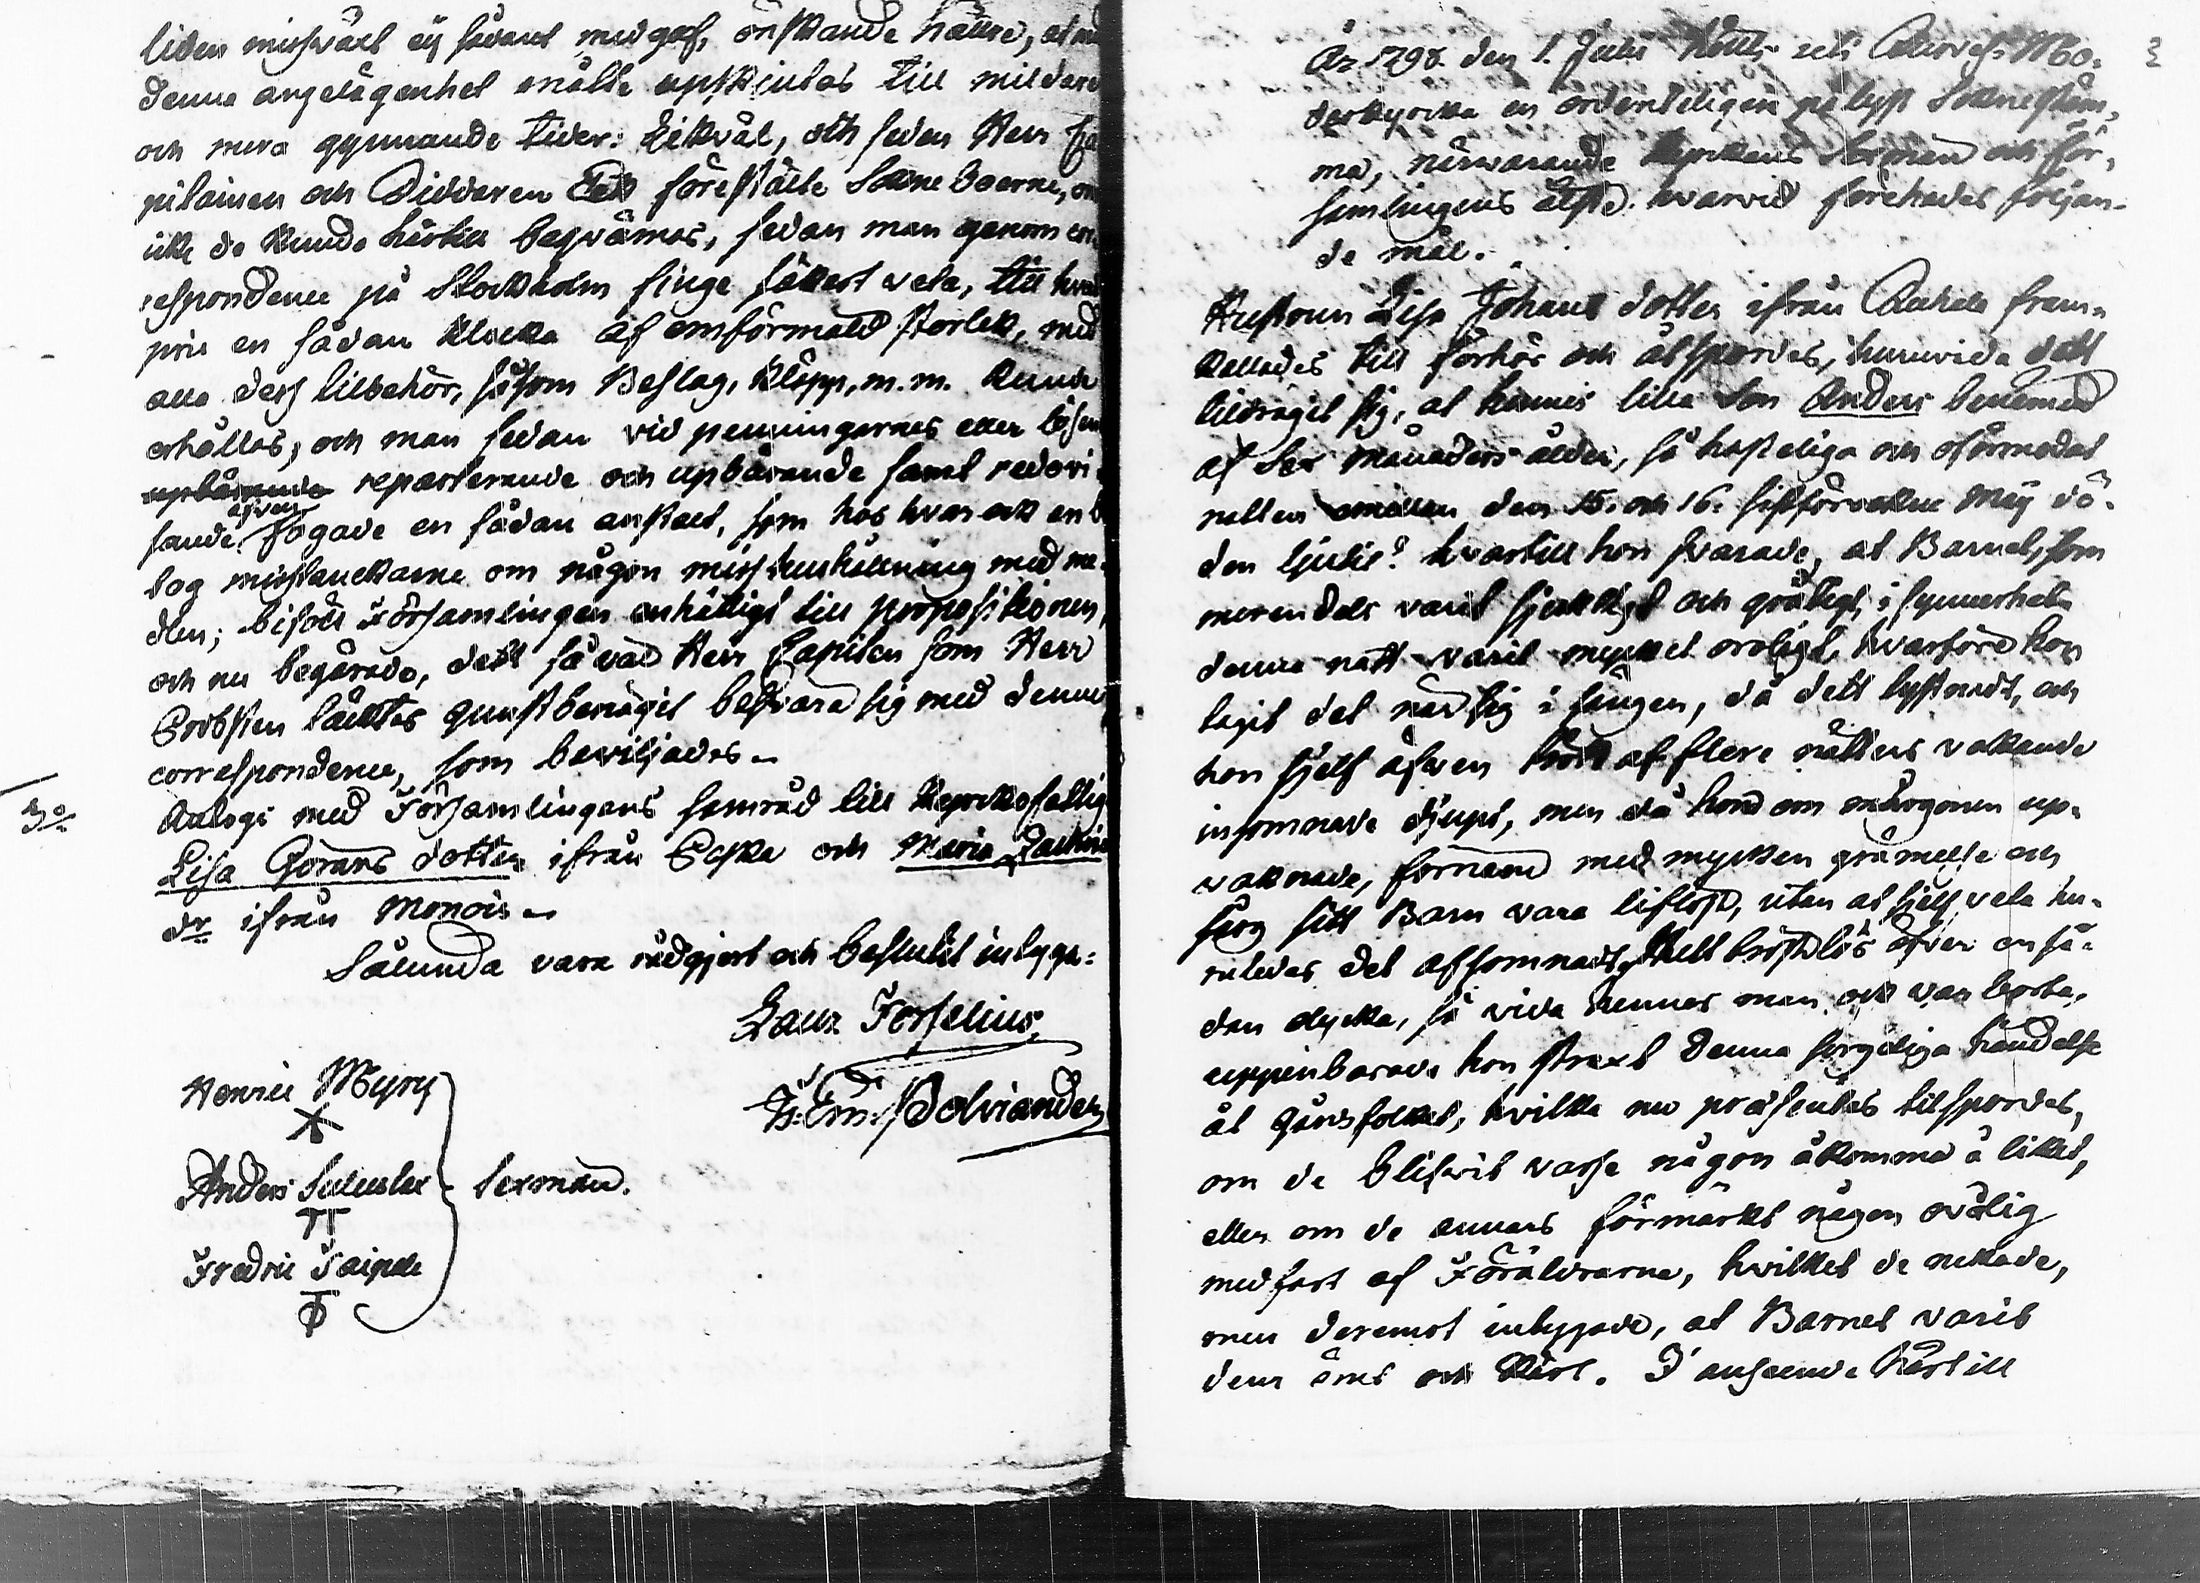 liden missväxt ej sådant medgaf, önskande hällre, at med
denna angelägenhet måtte upskiutas till mildare
och mera gynnande tider: Likväl, och sedan Herr Ca
pitainen och Riddaren föreställte Sockneboerne, om
icke de kunde härtill beqvämas, sedan man genom cor
respondence på Stockholm finge säkert veta, till hvad
pris en sådan klocka af omförmäld storlek, med
alla dess tilbehör, såsom Beslag, kläpp, m.m. kunde
erhållas, och man sedan vid penningarnes eller lösens
upbärande reparterande och upbärande samt redovi
sande äfven fogade en sådan anstalt, som hos hvar och en be
tog misstanckarne om någon misshushållning med me
dlen; biföll Församlingen enhälligt till propositionen,
och nu begärade, dett så väl Herr Capiten som Herr
Probsten täcktes gunstbenägit besvära sig med denna
correspondence, som beviljades.
3o
Antogs med Församlingens samråd till Kyrckofattig
Lisa Görans dotter ifrån och Maria
dr ifrån Monois.
Sålunda vara rådgjort och beslutit intyga:
Laur. Forselius.
Polviander
Henric Myry
Anders
Sexmän.
Fredric Taipale
3
År 1798 den 1. Julii hölts uti Mo-
derkyrcka en ordenteligen pålyst Sockneståm-
ma, närwarande Kyrckans Sexmän och För-
samlingens älste. hvarvid förehades följan-
de mål.
Hustrun Lisa Johans dotter ifrån fram-
kallades till förhör och åtspordes, huruvida dett
tildragit sig, at hennes lilla Son Anders benämnd
af Sex månaders ålder, så hasteliga och oförmodat
natten emillan den 15. och 16. sistförvekne Maij dö-
den ljutit? hvartill hon svarade, at Barnet, som
merendels varit sjukligt och gråtigt, i synnerhet
denna natt varit mycket oroligt, hvarföre hon
tagit det när sig i sängen, då dett tystnadt, och
hon sjelf äfwen trött af flere nätters vakande
insomnade djupt, men då hon om morgonen up-
waknade, förnam med mycken grämelse och
sorg sitt Barn vara liflöst, utan at sjelf veta hu-
ruledes det afsomnadt. Hell tröstlös öfver en så-
dan olycka, så vida hennes man ock var borta,
uppenbarade hon straxt denna sorgeliga händelse
åt gårdsfolket, hvilka nu præsentes tilspordes,
om de blifvit varse någon åkomma å liket,
eller om de annars förmärkt någon ovälig
medfart af Föräldrarna, hvilket de nekade,
men deremot intygade, at Barnet varit
dem ömt och kärt. I anseende härtill